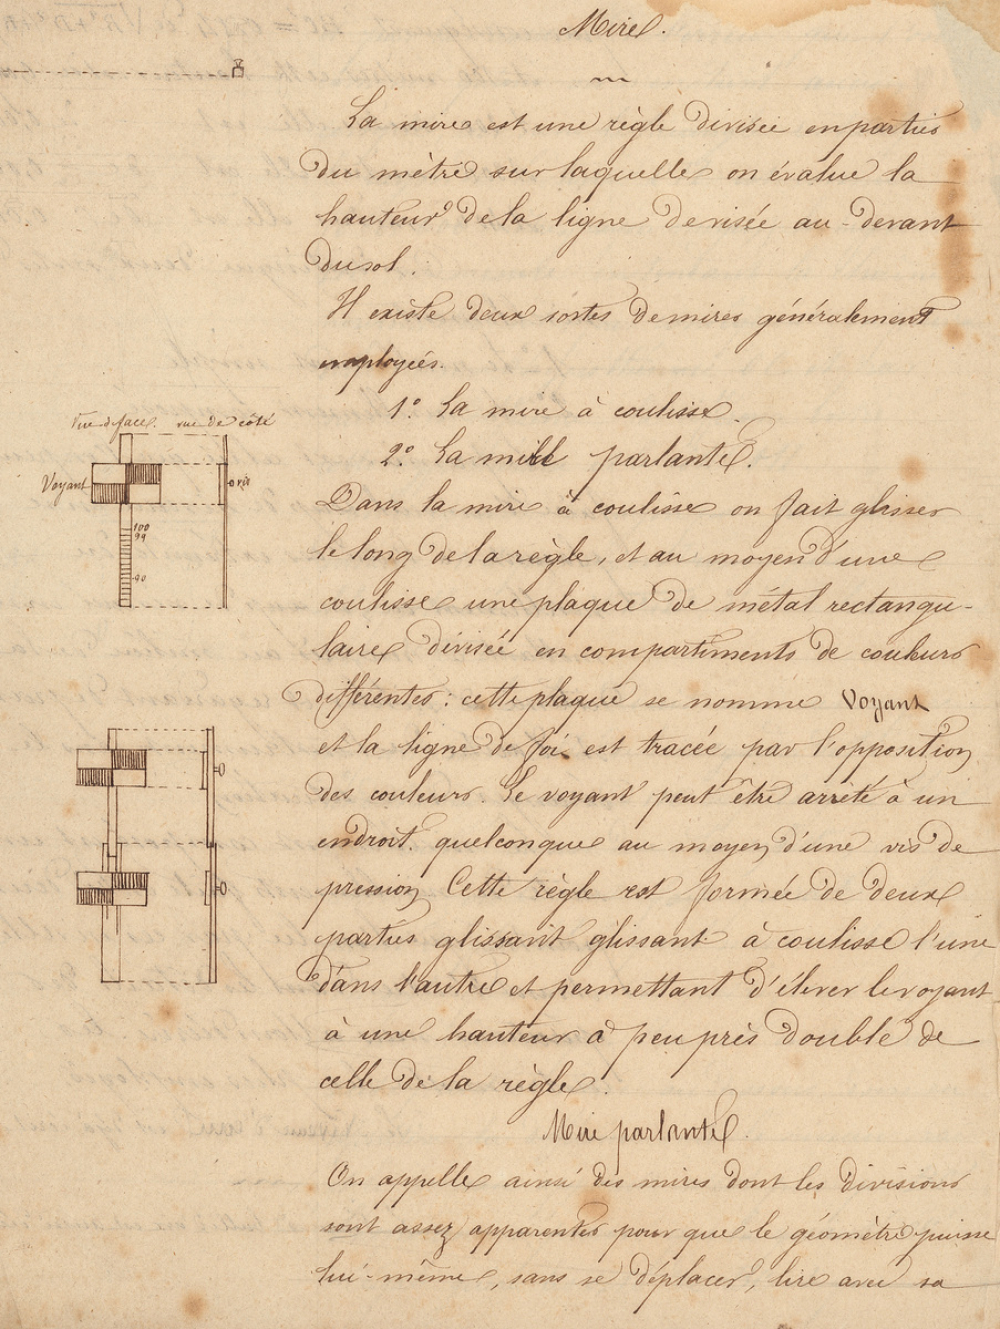 Mire.
La mire est une règle divisée en parties
du mètre sur laquelle on évalue la
hauteur de la ligne de visée au-devant
du sol.
Il existe deux sortes de mires généralement
employées.
1° La mire à coulisse.
2° La mire parlante.
Vue de face. vue de côté
Voyant
vis
100
99
90
Dans la mire à coulisse on fait glisser
le long de la règle, et au moyen d'une
coulisse une plaque de métal rectangu-
laire divisée en compartiments de couleurs
différentes : cette plaque se nomme Voyant
et la ligne de foi est tracée par l'opposition
des couleurs. Le voyant peut être arrêté à un
endroit quelconque au moyen d'une vis de
pression. Cette règle est formée de deux
parties glissant glissant à coulisse l'une
dans l'autre et permettant d'élever le voyant
à une hauteur à peu près double de
celle de la règle.
Mire parlante.
On appelle ainsi des mires dont les divisions
sont assez apparentes pour que le géomètre puisse
lui-même, sans se déplacer, lire avec sa